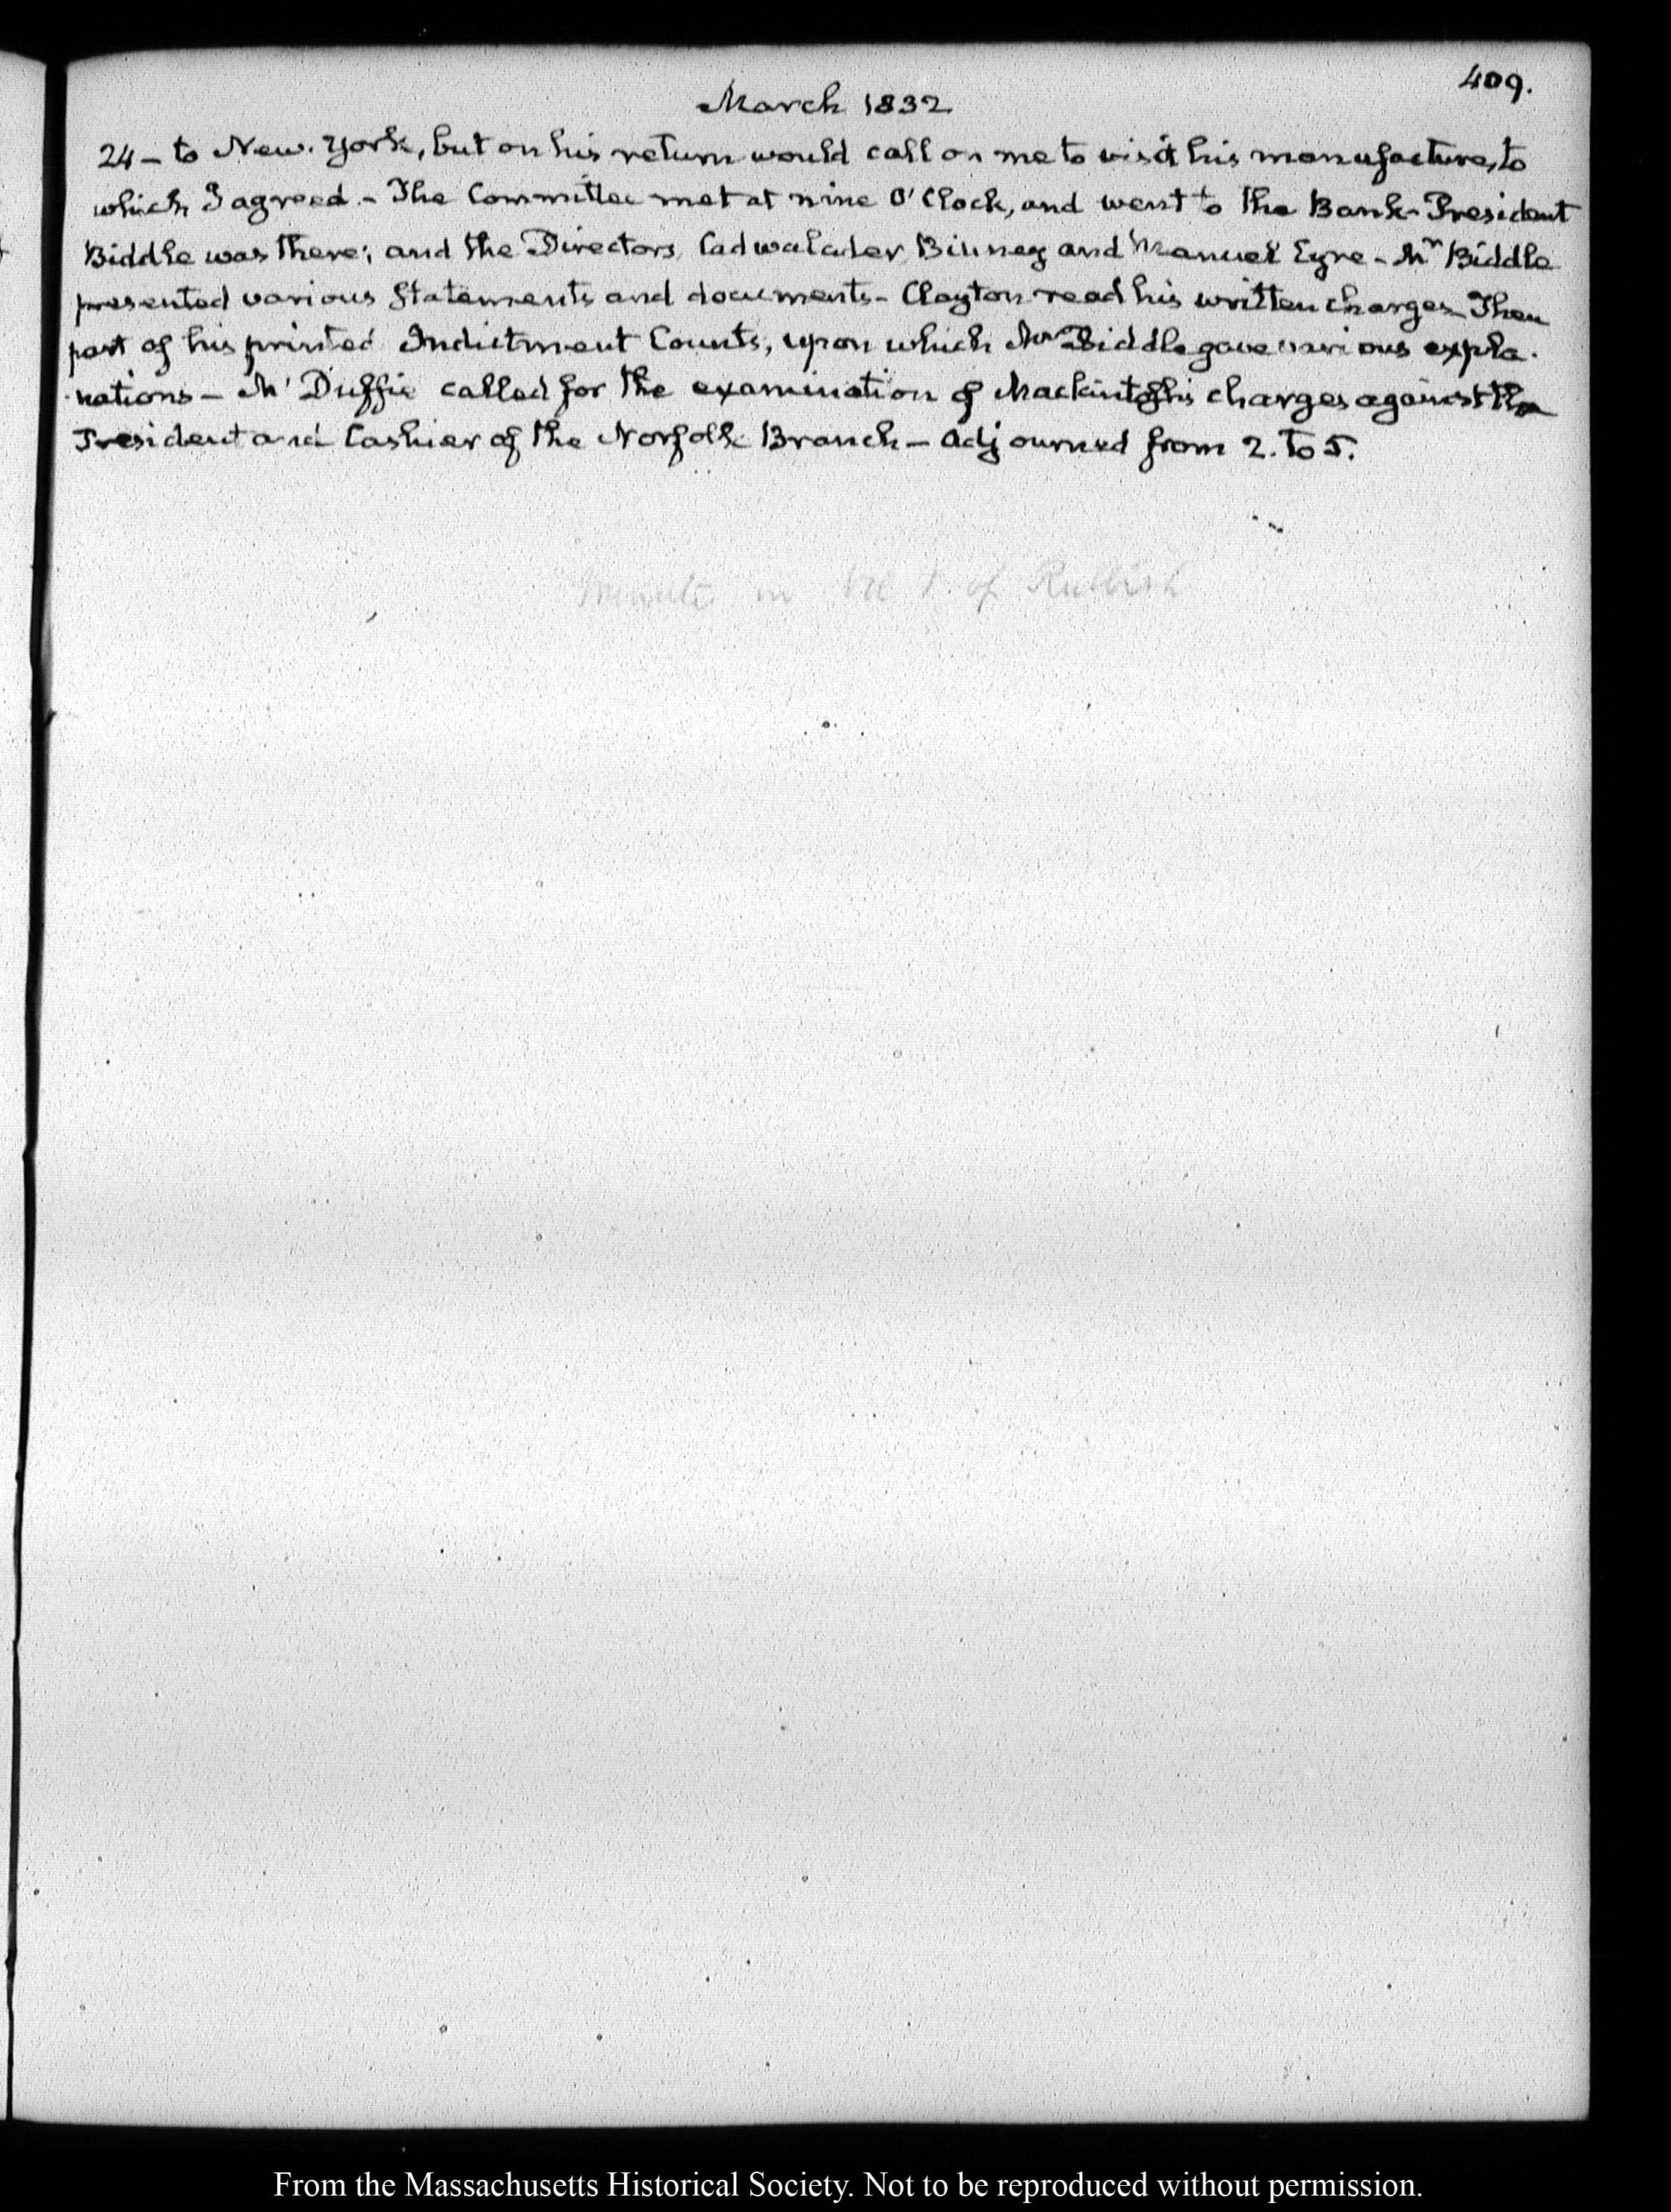 409.
March 1832
24 - to New-York, but on his return would call on me to visit his manufacture, to
which I agreed. - The Committee met at nine O'Clock, and went to the Bank - President
Biddle was there; and the Directors, Cadwalader, Binney and Manuel Eyre - Mr Biddle
presented various Statements and documents - Clayton read his written charges - Then
part of his printed Indictment Counts, upon which Mr Biddle gave various expla-
-nations - Mc'Duffie called for the examination of Mackintosh's charges against the
President and Cashier of the Norfolk Branch - Adjourned from 2. to 5.
in of Rubbish
From the Massachusetts Historical Society. Not to be reproduced without permission.